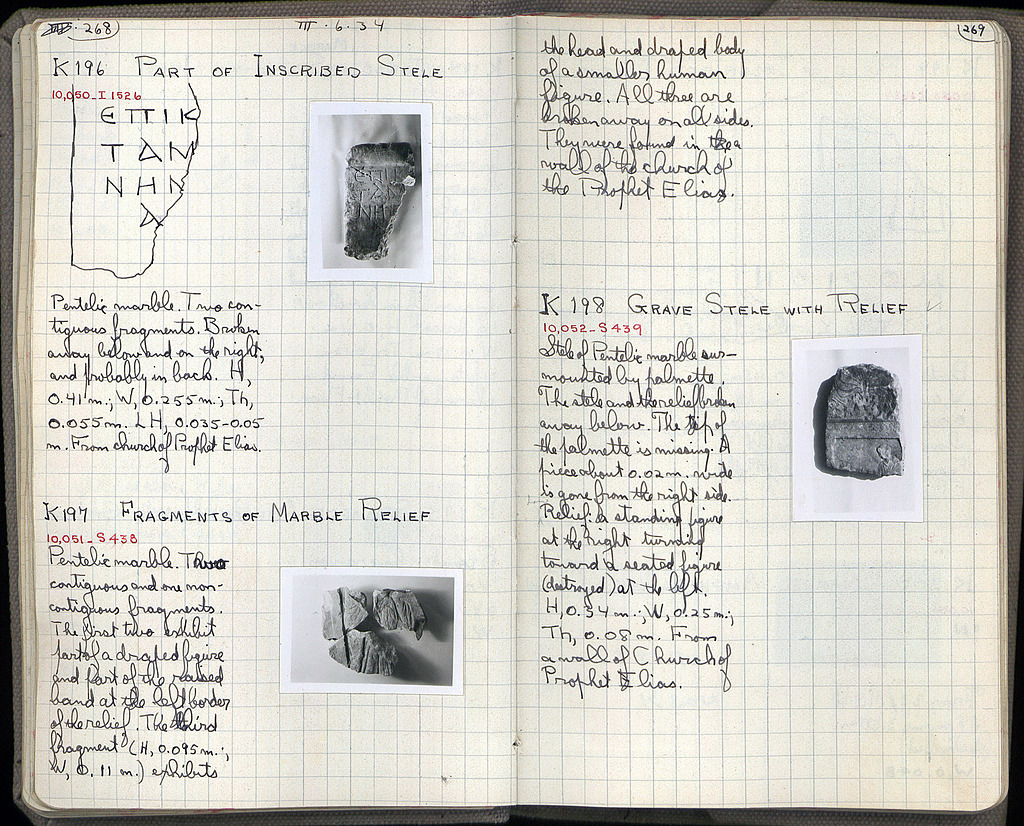 268
III · 6 · 34
K 196 PART OF INSCRIBED STELE
10,050_I 1526
ΕΠΙΚ
ΤΑΝ
ΝΗΝ
Α
Pentelic marble. Two con-
tiguous fragments. Broken
away below and on the right,
and probably in back. H,
0.41 m.; W, 0.255 m.; Th,
0.055 m. LH, 0.035-0.05
m. From church of Prophet Elias.
K 197 FRAGMENTS OF MARBLE RELIEF
10,051_S 438
Pentelic marble. Two
contiguous and one non-
contiguous fragments.
The first two exhibit
part of a draped figure
and part of the raised
band at the left border
of the relief. The third
fragment (H, 0.095 m.;
W, 0.11 m.) exhibits
269
the head and draped body
of a smaller human
figure. All three are
broken away on all sides.
They were found in a
wall of the church of
the Prophet Elias.
K 198 GRAVE STELE WITH RELIEF
10,052_S 439
Stele of Pentelic marble sur-
mounted by palmette.
The stele and the relief broken
away below. The tip of
the palmette is missing. A
piece about 0.02 m. wide
is gone from the right side.
Relief: a standing figure
at the right turning
toward a seated figure
(destroyed) at the left.
H, 0.34 m.; W, 0.25 m.;
Th, 0.08 m. From
a wall of Church of
Prophet Elias.